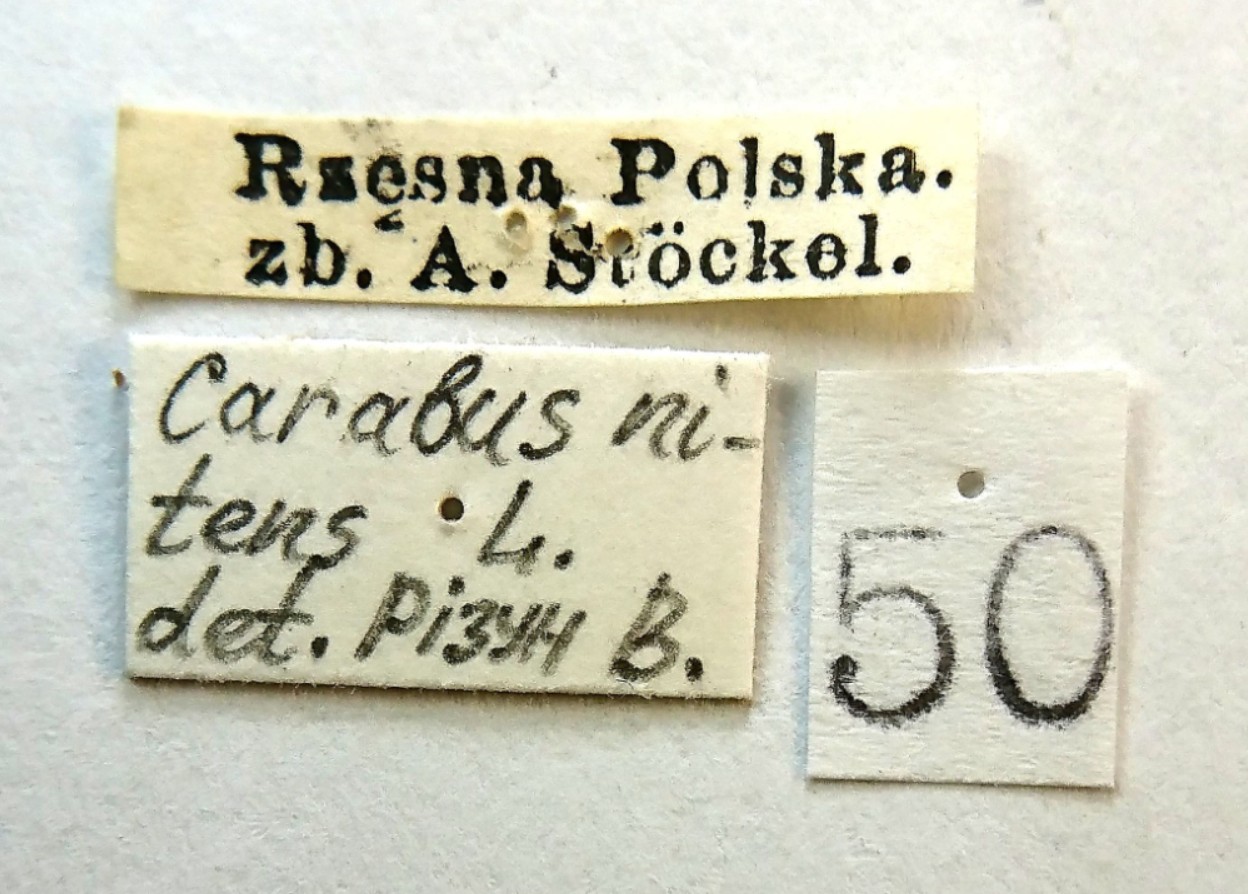 Rzęsna Polska.
zb. A. Stöckel.
Carabus ni-
tens L.
det. Різун В.
50